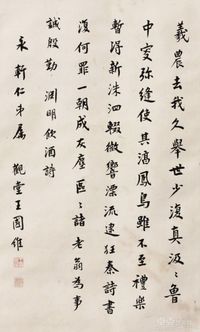 羲農去我久舉世少復真汲〻魯
中叟弥縫使其淳鳳鳥雖不至禮樂
暫得新洙泗輟微響漂流逮狂秦詩書
復何罪一朝成灰塵區〻諸老翁為事
誠殷勤 淵明飲酒詩
永新仁弟屬 觀堂王國維